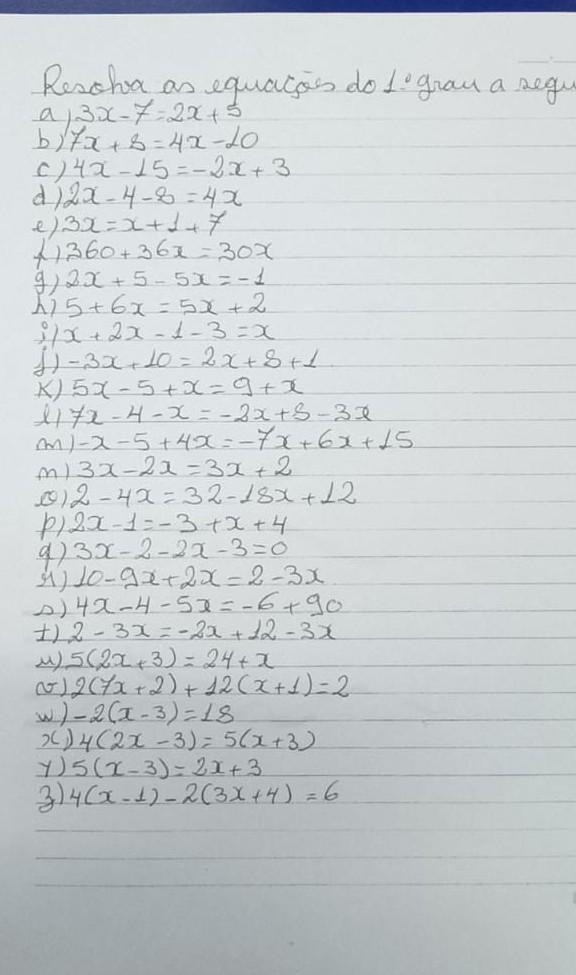 Resolva as equações do 1º grau a segu
a) 3x - 7 = 2x + 5
b) 7x + 8 = 4x - 10
c) 4x - 15 = -2x + 3
d) 2x - 4 - 8 = 4x
e) 3x = x + 1 + 7
f) 360 + 36x = 30x
g) 2x + 5 - 5x = -1
h) 5 + 6x = 5x + 2
i) x + 2x - 1 - 3 = x
j) -3x + 10 = 2x + 8 + 1
K) 5x - 5 + x = 9 + x
l) 7x - 4 - x = -2x + 8 - 3x
m) -x - 5 + 4x = -7x + 6x + 15
n) 3x - 2x = 3x + 2
o) 2 - 4x = 32 - 18x + 12
p) 2x - 1 = -3 + x + 4
q) 3x - 2 - 2x - 3 = 0
r) 10 - 9x + 2x = 2 - 3x
s) 4x - 4 - 5x = -6 + 90
t) 2 - 3x = -2x + 12 - 3x
u) 5(2x + 3) = 24 + x
v) 2(7x + 2) + 12(x + 1) = 2
w) -2(x - 3) = 18
x) 4(2x - 3) = 5(x + 3)
y) 5(x - 3) = 2x + 3
z) 4(x - 1) - 2(3x + 4) = 6